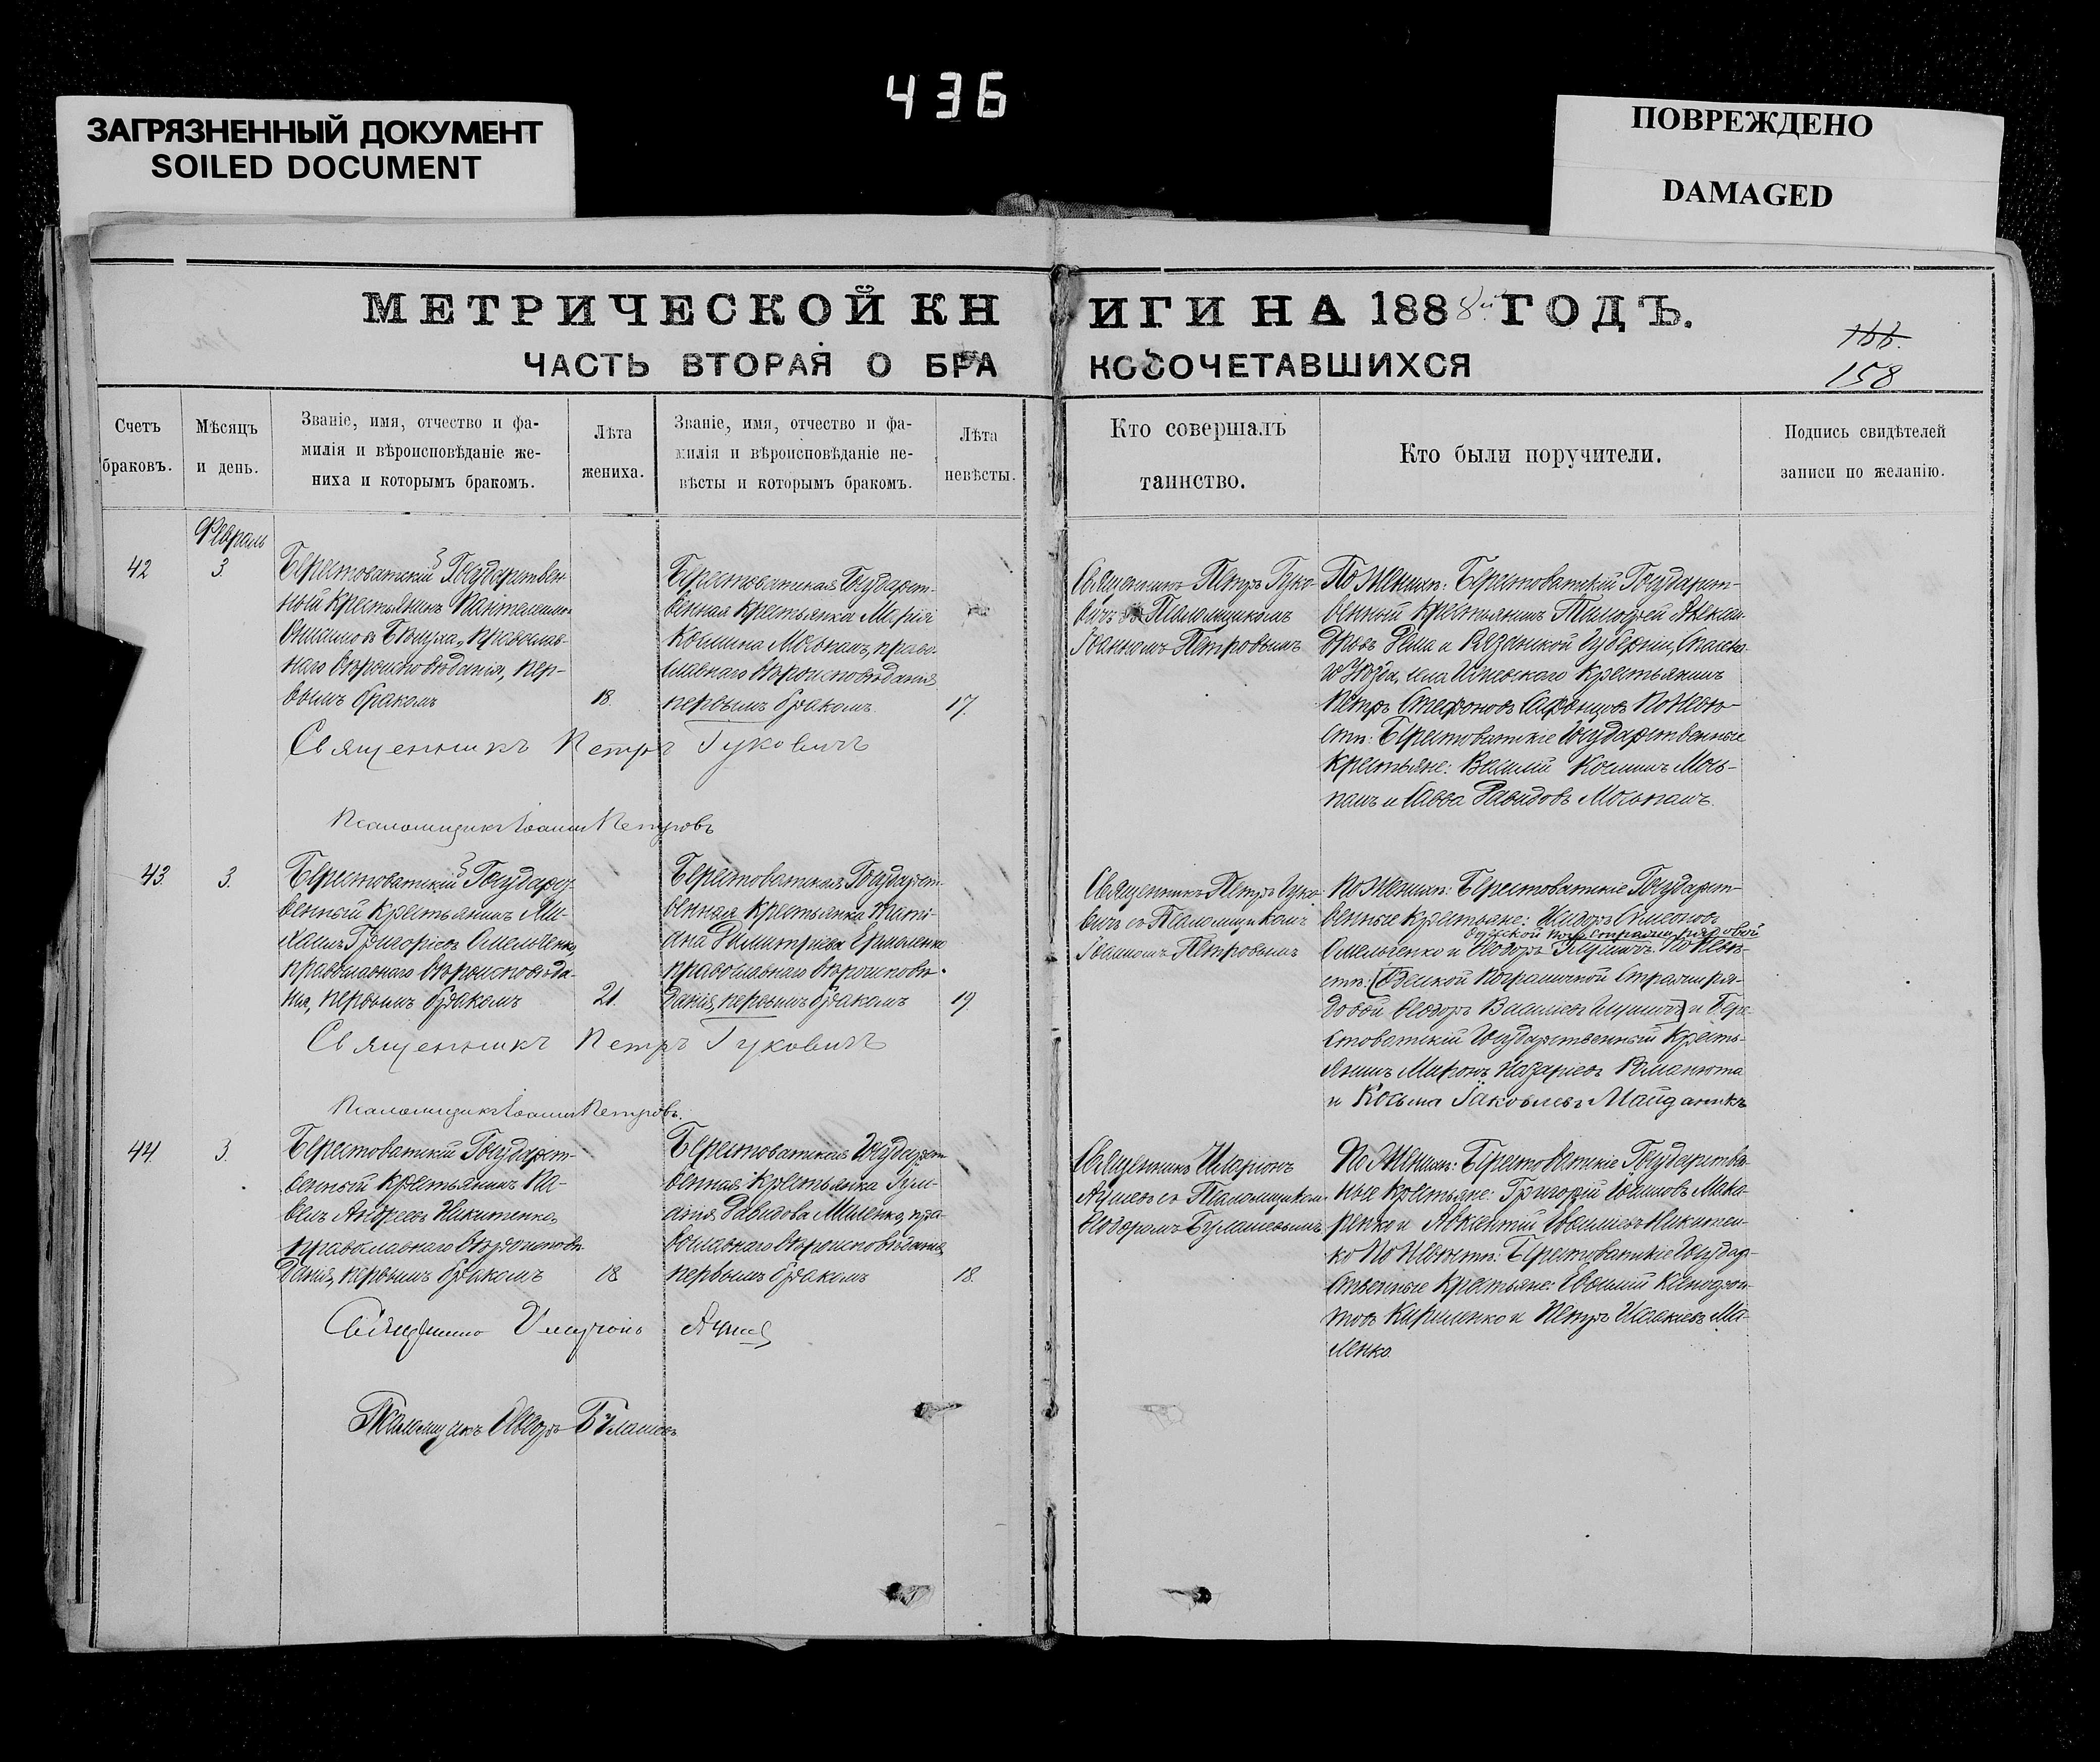 436
ЗАГРЯЗНЕННЫЙ ДОКУМЕНТ
SOILED DOCUMENT
ПОВРЕЖДЕНО
DAMAGED
МЕТРИЧЕСКОЙ КНИГИ НА 1888й ГОДЪ.
166.
158
ЧАСТЬ ВТОРАЯ О БРАКОСОЧЕТАВШИХСЯ
Счетъ
браковъ.
Мѣсяцъ
и день.
Званіе, имя, отчество и фа-
милія и вѣроисповѣданіе же-
ниха и которымъ бракомъ.
Лѣта
жениха.
Званіе, имя, отчество и фа-
милія и вѣроисповѣданіе не-
вѣсты и которымъ бракомъ.
Лѣта
невѣсты.
Кто совершалъ
таинство.
Кто были поручители.
Подпись свидѣтелей
записи по желанію.
Февраль
42
3.
Берестоватскій Государствен-
ный крестьянинъ Пантелеимонъ
православ-
наго вѣроисповѣданія, пер-
вымъ бракомъ
18.
Берестоватская Государст-
венная крестьянка Марія
Косьмина Моспанъ, право-
славнаго вѣроисповѣданія
первымъ бракомъ
17.
Священникъ Петръ Гуко-
вичъ съ Псаломщикомъ
Іоанномъ Петровымъ
По женихѣ: Берестоватскій Государст-
венный крестьянинъ Тимоѳей Алексан-
дровъ и Рязанской губерніи, Спасска-
го Уѣзда, села Ижевскаго крестьянинъ
Петръ Стефановъ Сафоновъ По невѣ-
стѣ: Берестоватскіе Государственные
крестьяне: Василій Косьминъ Мос-
панъ и Савва Давидовъ Моспанъ.
Священникъ Петръ Гуковичъ
Псаломщикъ Іоаннъ Петровъ
43.
3.
Берестоватскій Государст-
венный крестьянинъ Ми-
хаилъ Григоріевъ Омельченко,
православнаго вѣроисповѣда-
нія, первымъ бракомъ
21.
Берестоватская Государст-
венная крестьянка Таті-
ана Димитріева Ермоленко
православнаго вѣроисповѣ-
данія, первымъ бракомъ
19.
Священникъ Петръ Гуко-
вичъ съ Псаломщикомъ
Іоанномъ Петровымъ
По женихѣ: Берестоватскіе Государст-
венные крестьяне: Исидоръ Симеоновъ
рядовой
Омельченко и Ѳеодоръ По невѣ-
стѣ: Пограничной Стражи ря-
довой Ѳеодоръ Васильевъ и Бере-
стоватскій Государственный кресть-
янинъ Миронъ Назаріевъ Романюта
и Косьма Іаковлевъ Майданикъ
Священникъ Петръ Гуковичъ
Псаломщикъ Іоаннъ Петровъ.
44.
3.
Берестоватскій Государст-
венный крестьянинъ Па-
велъ Андреевъ Никитенко,
православнаго вѣроисповѣ-
данія, первымъ бракомъ
18
Берестоватская Государст-
венная крестьянка Іули-
анія Давидова Миленко, пра-
вославнаго вѣроисповѣданія,
первымъ бракомъ
18.
Священникъ Иларіонъ
съ Псаломщикомъ
Ѳеодоромъ Булашевымъ
По женихѣ: Берестоватскіе Государствен-
ные крестьяне: Григорій Іоанновъ Мака-
ренко и Авксентій
По невѣстѣ: Берестоватскіе Государ-
ственные крестьяне: Евѳимій
Кириленко и Петръ Ми-
ленко.
Священникъ Иларіонъ
Псаломщикъ Ѳеодоръ Булашевъ